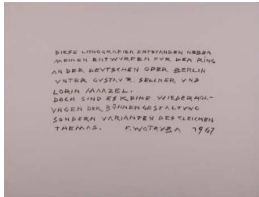 DIESE LITHOGRAFIEN ENTSTANDEN NEBEN
MEINEN ENTWÜRFEN FÜR DEN RING
AN DER DEUTSCHEN OPER BERLIN
UNTER GUSTAV R. SELLNER UND
LORIN MAAZEL.
DOCH SIND ES KEINE WIEDERHOL-
UNGEN DER BÜHNENGESTALTUNG
SONDERN VARIANTEN DES GLEICHEN
THEMAS. F. WOTRUBA 1967